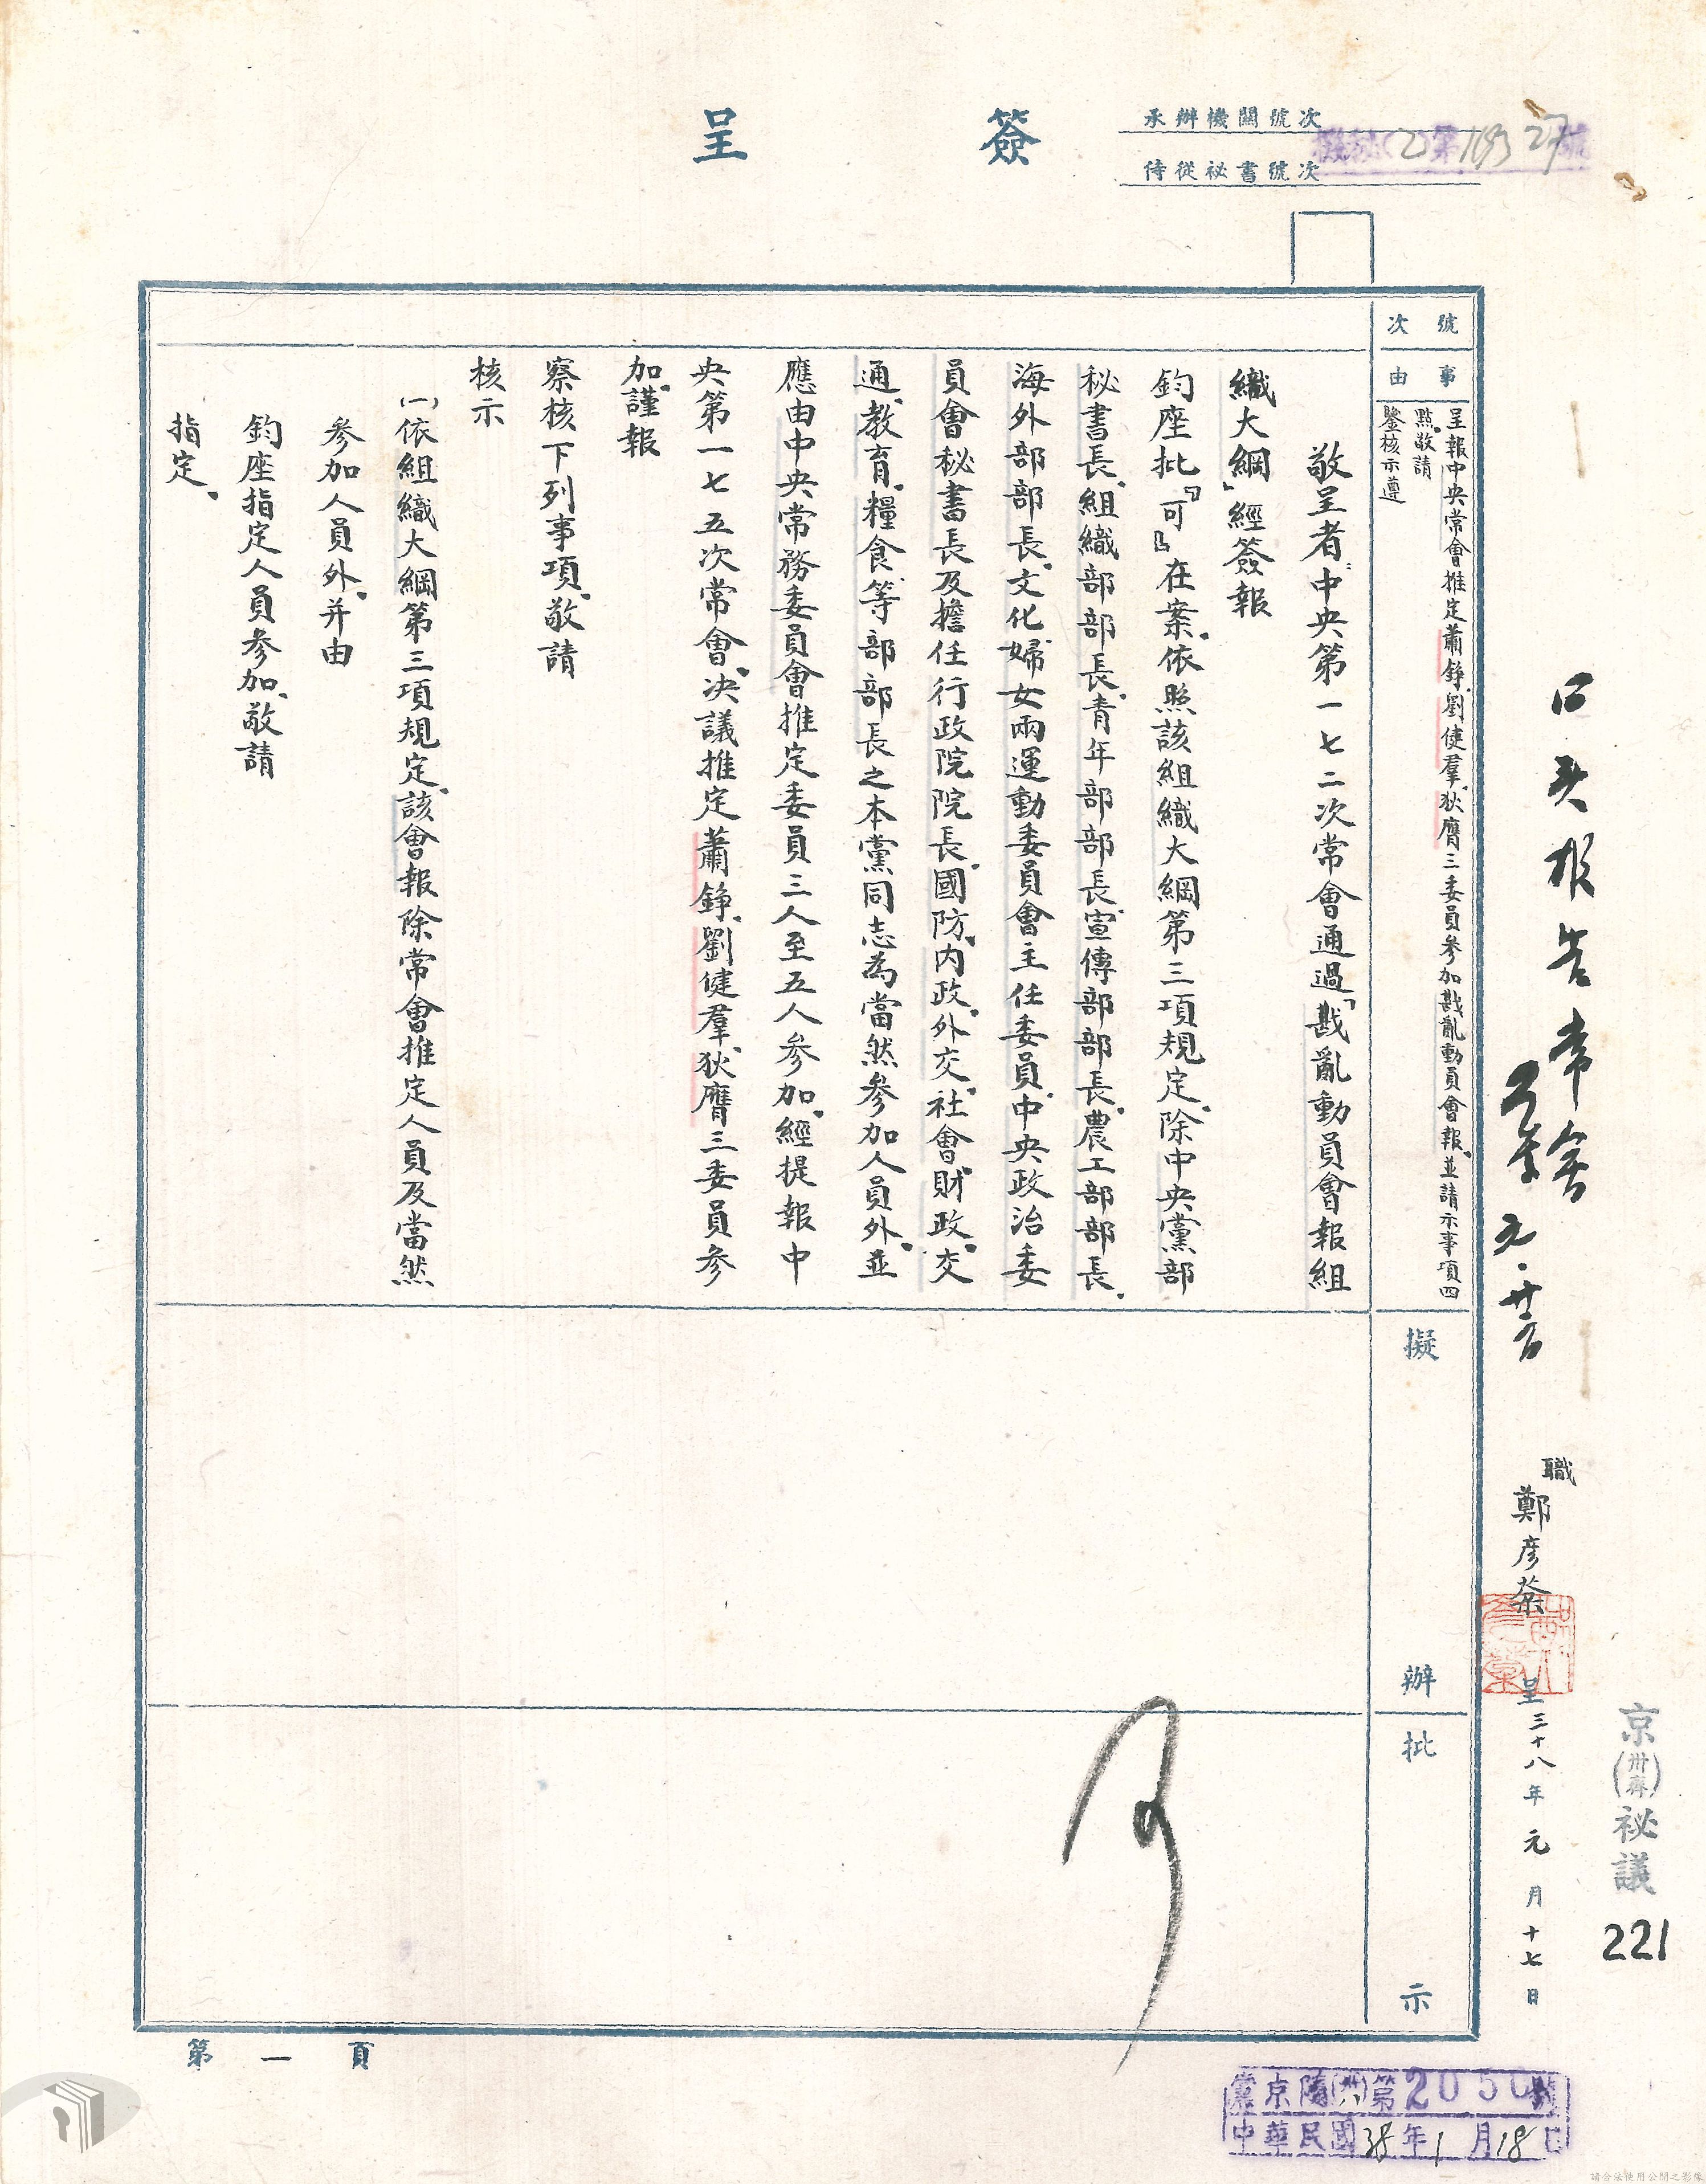 簽呈
承辦機關號次
侍從祕書號次
第 27 號
號次
事由
呈報中央常會推定蕭錚、劉健羣、狄膺三委員參加戡亂動員會報、並請示事項四
點、敬請
鑒核示遵
敬呈者、中央第一七二次常會通過「戡亂動員會報組
織大綱」經簽報
鈞座批『可』在案。依照該組織大綱第三項規定、除中央黨部
秘書長、組織部部長、青年部部長、宣傳部部長、農工部部長、
海外部部長、文化婦女兩運動委員會主任委員、中央政治委
員會秘書長及擔任行政院院長、國防、內政、外交、社會、財政、交
通、教育、糧食等部部長之本黨同志為當然參加人員外、並
應由中央常務委員會推定委員三人至五人參加、經提報中
央第一七五次常會、決議推定蕭錚、劉健羣、狄膺三委員參
加、謹報
察核下列事項、敬請
核示
(一)依組織大綱第三項規定、該會報除常會推定人員及當然
參加人員外、并由
鈞座指定人員參加、敬請
指定。
擬辦
批示
可
口頭報告常會
元．廿
職 鄭彥棻
呈 三十八年元月十七日
京(卅八)祕議
221
第一頁
黨京隨(卅八)第2050號
中華民國38年1月18日
請合法使用公開之影像